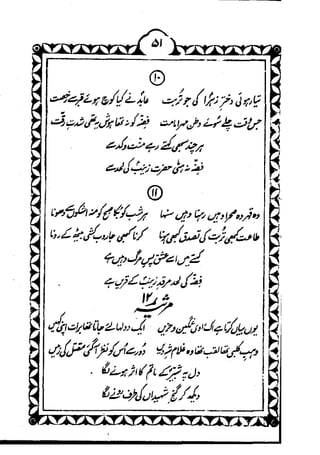 ۵۱
۱۰
تیار ہوئی دخترِ زہرا کی جو تربت عابد نے کیا کوچ ہوئے قبر سے رخصت
جس وقت چلے سوئے وطن اہلِ فضہ کو نہ تھا ہوش یہ تھی شدتِ رقت
ہر چند سبھی کہتے رہے منت و کد سے
فضہ نہ ہٹی حضرت زینب کی لحد سے
۱۱
وہ قبر وہ صحرا وہیں رہنا وہیں سہنا ہر شب کو منہ اشکوں سے دھونا
طاعت کبھی تربت کی تصدق کبھی ہونا کرنا کبھی جاروب کشی بیٹھ کے رونا
کہتے ہیں اسے عشق پسِ مرگ وہیں ہے
فضہ کی لحد مرقدِ زینب کے قریں ہے
مرثیہ ۱۲۸
یوں بیاں کرتا ہے اک راوی غمگین و حزیں ایک دولہا لئے جاتا تھا برات اپنی کہیں
وہبِ کلبی تھا لقب تھا وہ غلامِ شہِ دیں دور سے اس کو نظر آ گئی مقتل کی زمیں
دل پہ شبیر کے ماتم کا اثر ہونے لگا
دیکھ کر گنجِ شہیداں کی طرف رونے لگا